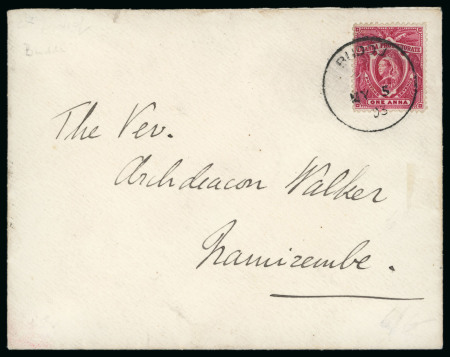 BUDDU
MY 5
03
ONE ANNA
The Ven.
Archdeacon Walker
Namirembe.